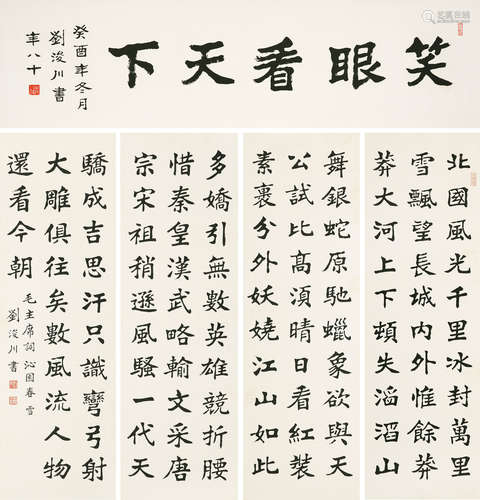 笑眼看天下
癸酉年冬月
劉浚川書
年八十
北國風光千里冰封萬里
雪飄望長城内外惟餘莽
莽大河上下頓失滔滔山
舞銀蛇原馳蠟象欲與天
公試比高須晴日看紅裝
素裹分外妖嬈江山如此
多嬌引無數英雄競折腰
惜秦皇漢武略輸文采唐
宗宋祖稍遜風騷一代天
驕成吉思汗只識彎弓射
大雕俱往矣數風流人物
還看今朝
毛主席詞沁園春雪
劉浚川書